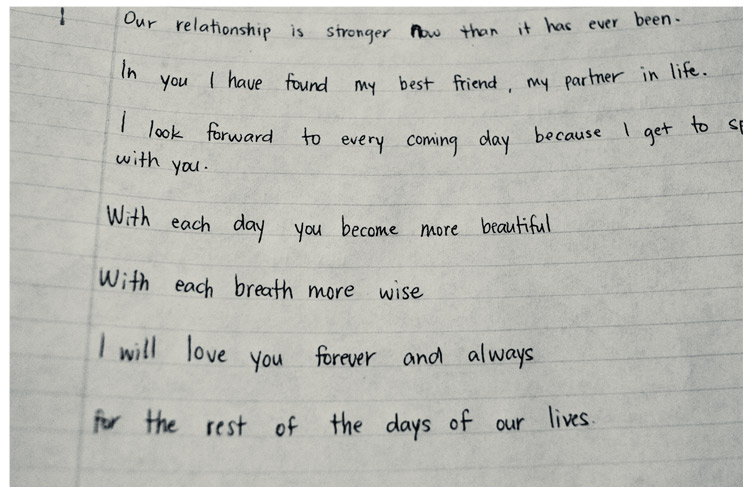 Our relationship is stronger now than it has ever been.
In you I have found my best friend, my partner in life.
I look forward to every coming day because I get to
with you.
With each day you become more beautiful
With each breath more wise
I will love you forever and always
for the rest of the days of our lives.